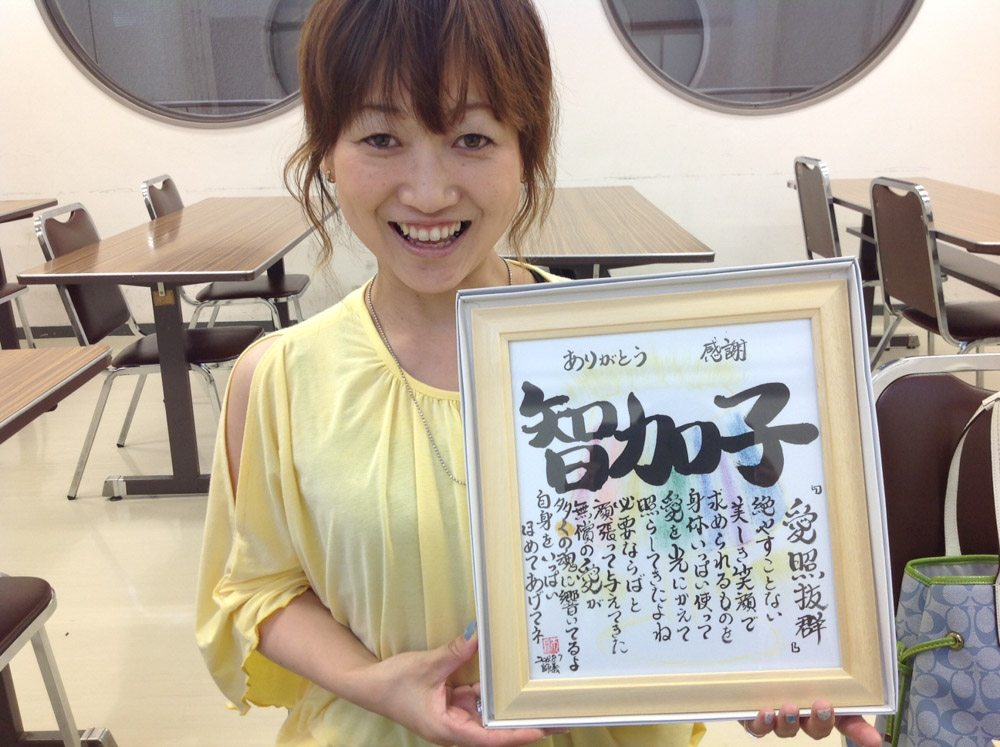 ありがとう 感謝
智加子
『愛照抜群』
絶やすことない
美しき笑顔で
求められるものを
身体いっぱい使って
愛を光にかえて
照らしてきたよね
必要ならばと
頑張って与えてきた
無償の愛が
多くの魂に響いてるよ
自身をいっぱい
ほめてあげてネ